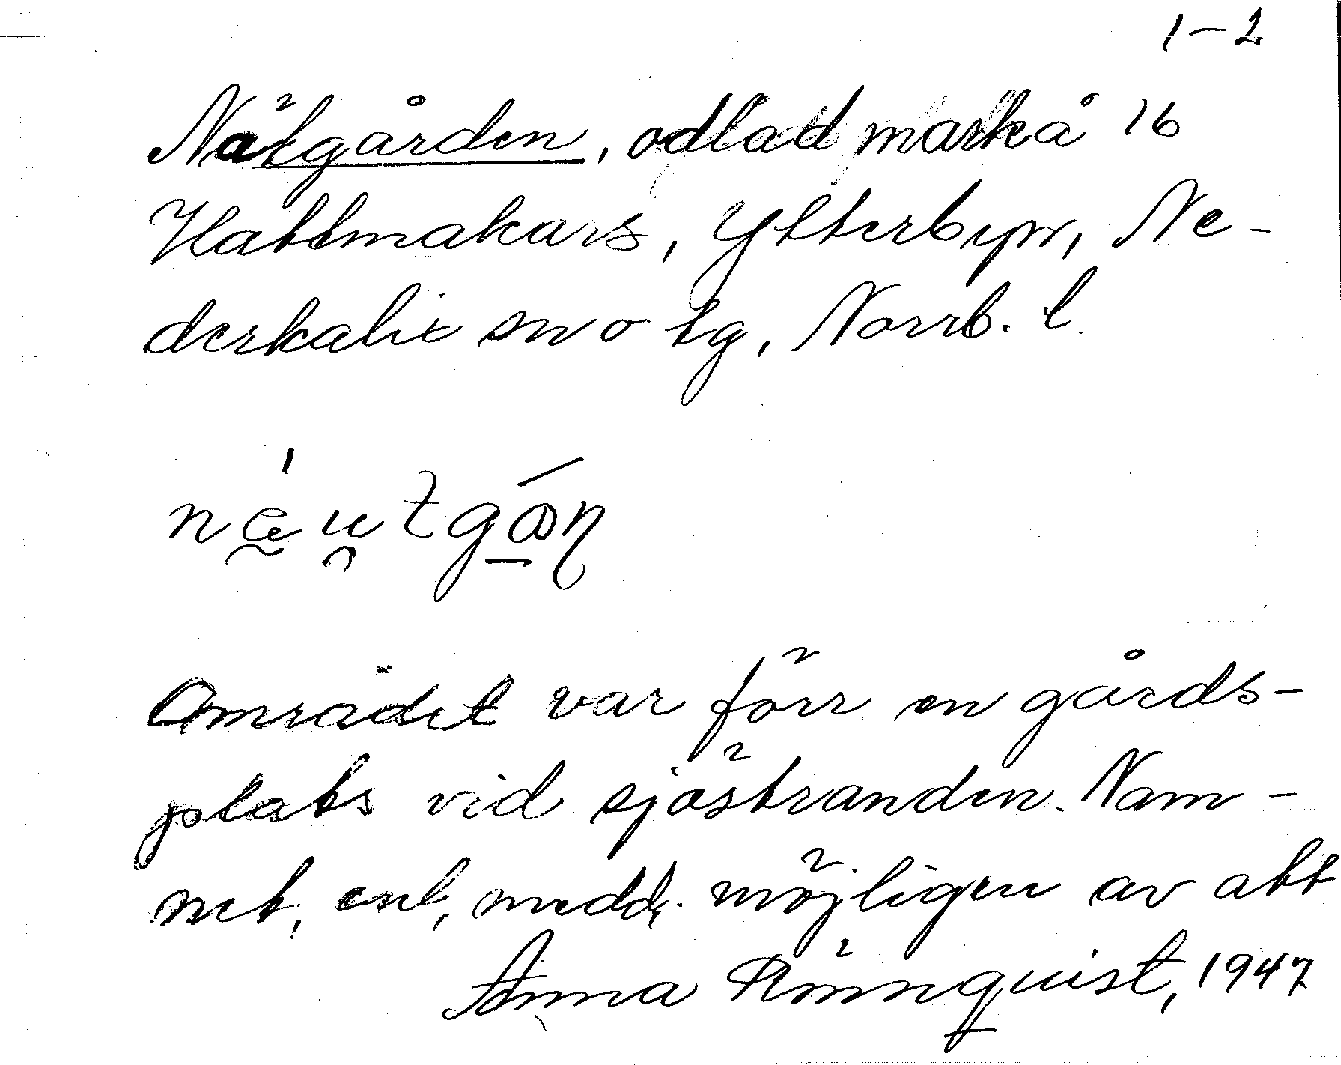 1-2
Nätgården, odlad mark å 16
Hattmakars, Ytterbyn, Ne-
derkalix sn o tg, Norrb. l.
Området var förr en gårds-
plats vid sjöstranden. Nam-
net, enl. medd. möjligen av att
Anna Rönnquist, 1947